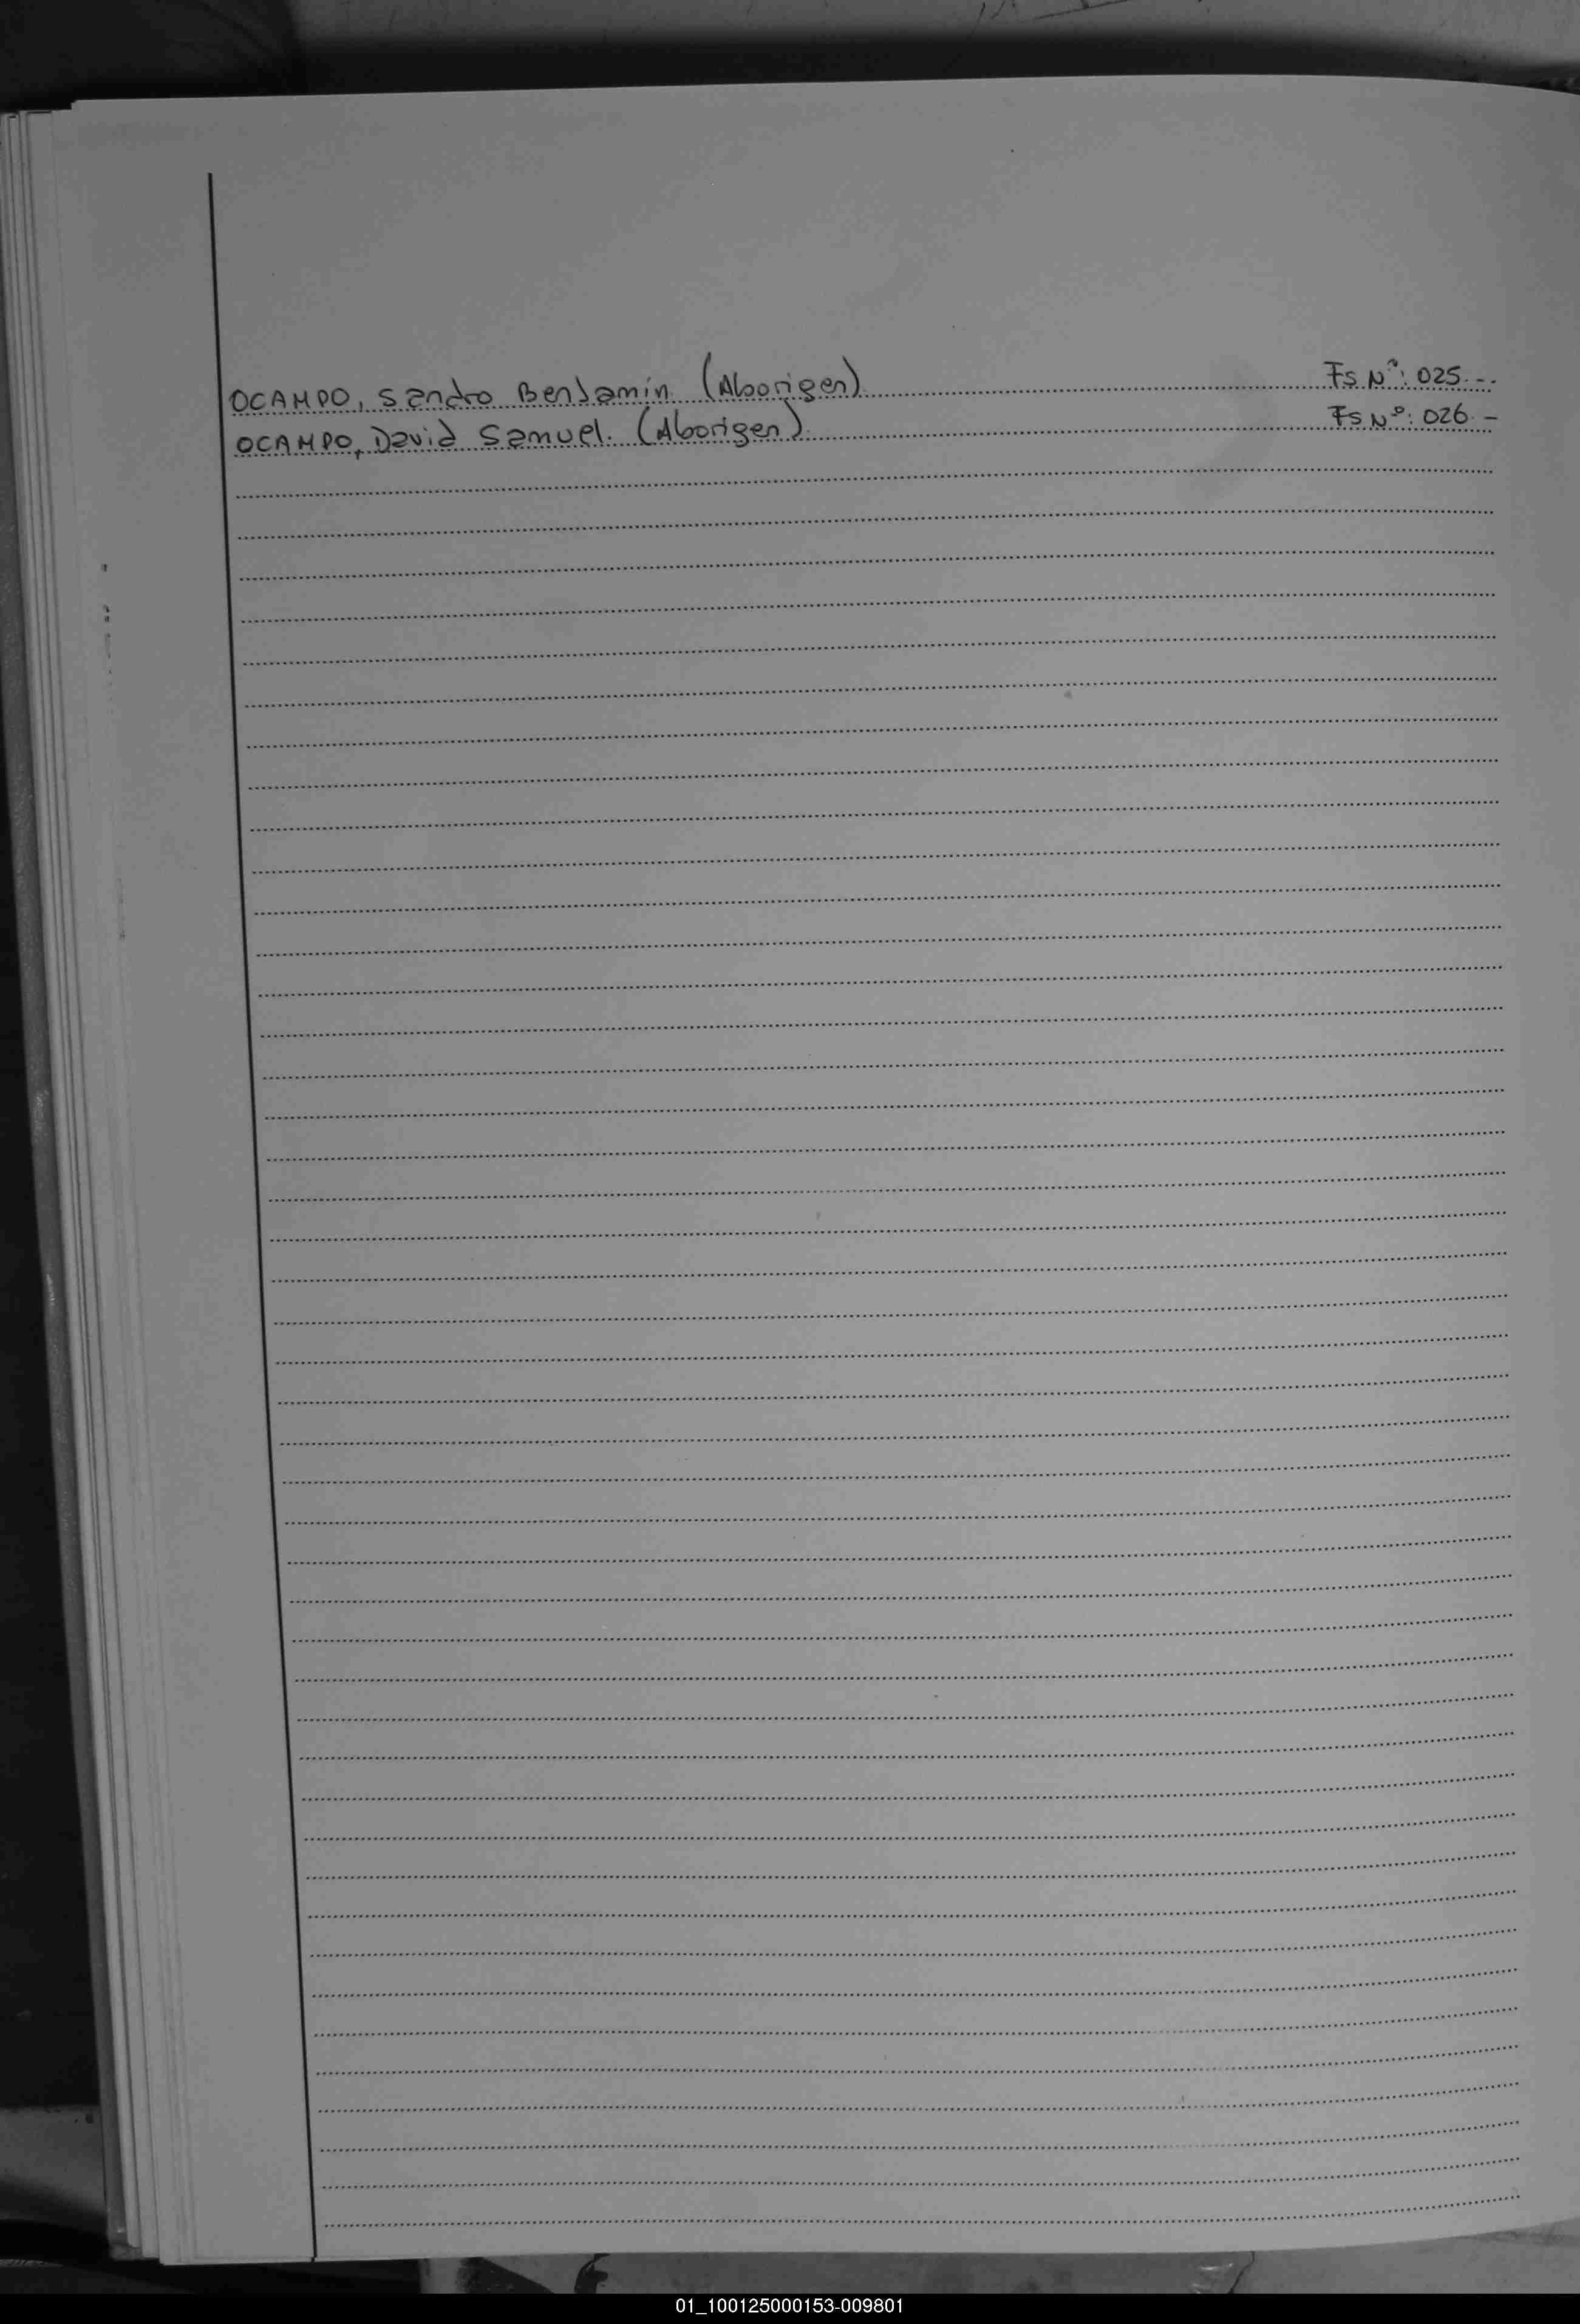 OCAMPO, Sandro Benjamín (Aborigen) Fs Nº: 025.-
OCAMPO, David Samuel. (Aborigen) Fs Nº: 026.-
01_100125000153-009801